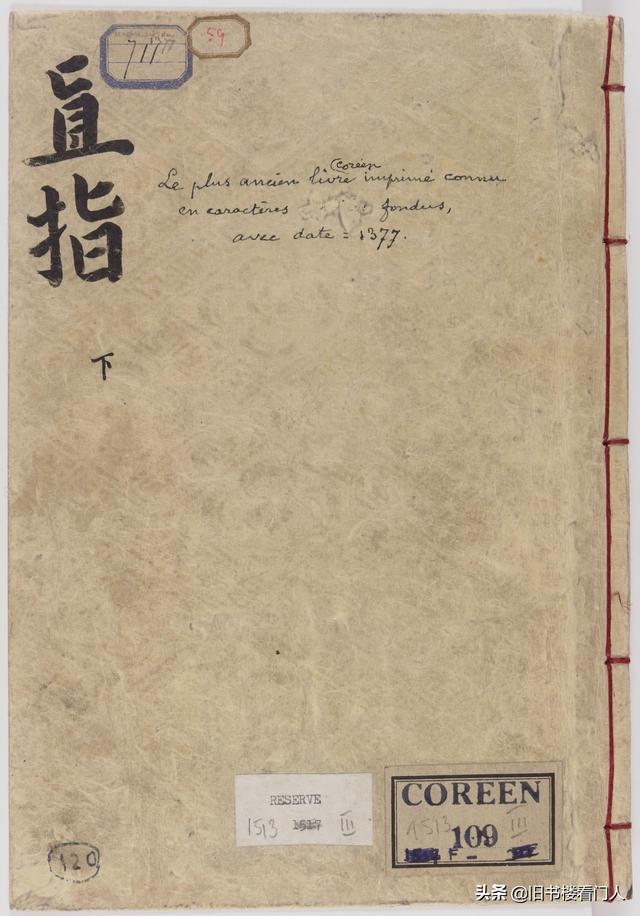 711
59
直指
下
Coréen
Le plus ancien livre imprimé connu
en caractères fondus,
avec date = 1377.
RESERVE
1513 1517 III
COREEN
1513 III
109
120
头条 @旧书楼看门人